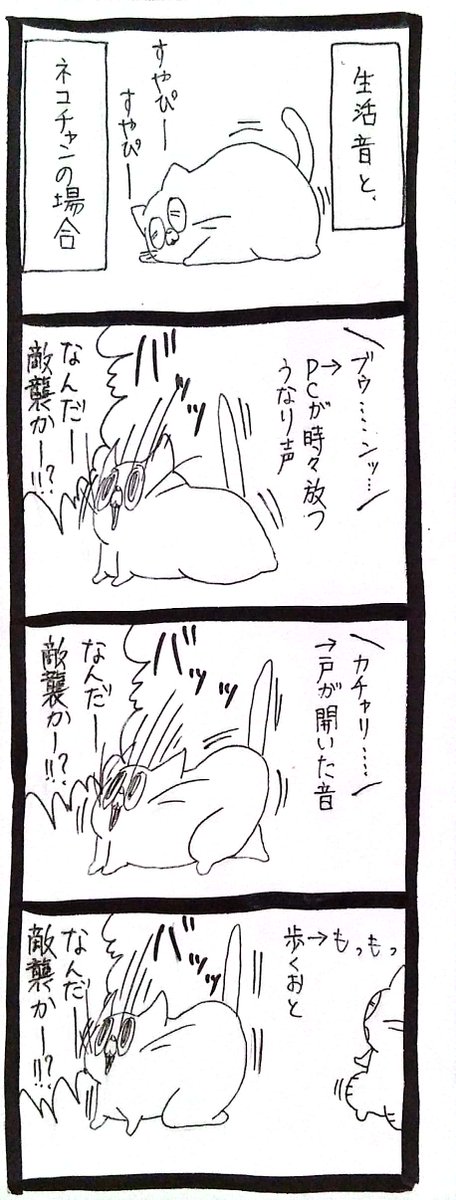 生活音と、
ネコチャンの場合
すやぴー
すやぴー
ブゥ……ンッ…
→PCが時々放つ
うなり声
バッッ
なんだー
敵襲かー!!?
カチャリ……
→戸が開いた音
バッッ
なんだー
敵襲かー!!?
もっもっ
→歩くおと
バッッ
なんだー
敵襲かー!!?